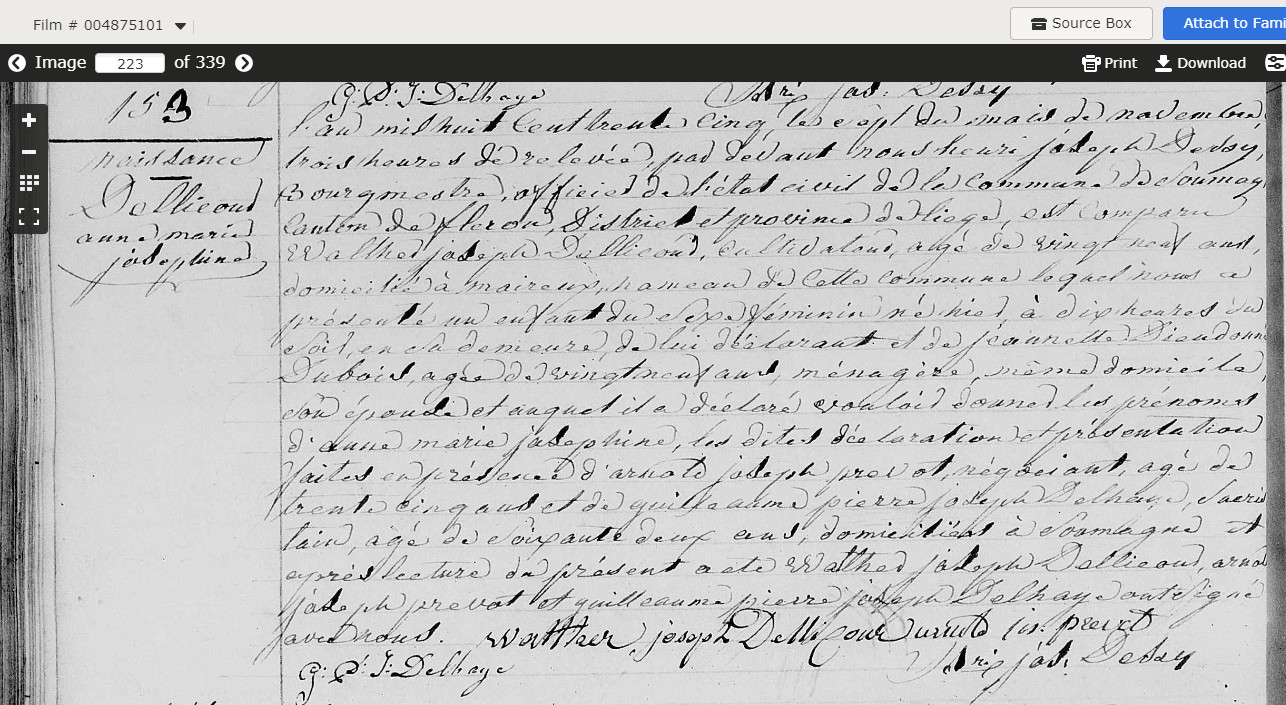 Film # 004875101
Source Box
Attach to Fami
Image 223 of 339
Print
Download
G: P: J: Delhaye
hri jos: Dessy
153
naissance
Dellicour
anne marie
josephine
l'an mil huit cent trente cinq, le sept du mois de novembre,
trois heures de relevée, par devant nous henri joseph Dessy,
Bourgmestre, officier de l'état civil de la commune de Soumagne
Canton de fleron, District et province de liege, est comparu
Walther joseph Dellicour, cultivateur, agé de vingt neuf ans,
domicilié à maireux, hameau de cette commune lequel nous a
présenté un enfant du sexe féminin né hier à dix heures du
soir, en sa demeure, de lui déclarant et de jeannette Dieudonné
Dubois, agée de vingt neuf ans, ménagère, même domicile,
son épouse et auquel il a déclaré vouloir donner les prénoms
d'anne marie josephine, les dites déclaration et présentation
faites en présence d'arnold joseph prevot, négociant, agé de
trente cinq ans et de guilleaume pierre joseph Delhaye, sacris
tain, agé de soixante deux ans, domiciliés à Soumagne et
après lecture du présent acte Walther joseph Dellicour, arnold
joseph prevot et guilleaume pierre joseph Delhaye ont signé
avec nous. Walther joseph Dellicour arnold jos: prevot
G: P: J: Delhaye
hri jos: Dessy